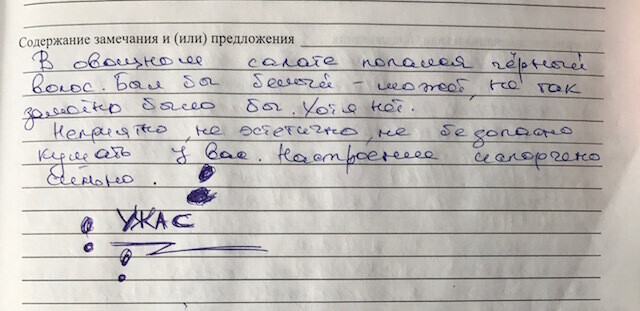 Содержание замечания и (или) предложения
В овощном салате попался чёрный
волос. Был бы белый - может, не так
заметно было бы. Хотя нет.
Неприятно, не эстетично, не безопасно
кушать у вас. Настроение испорчено
сильно.
! УЖАС !